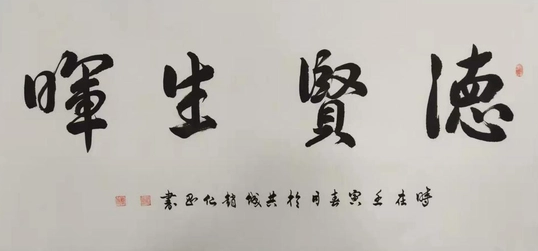 德賢生暉
時在壬寅春月於共城趙仁書